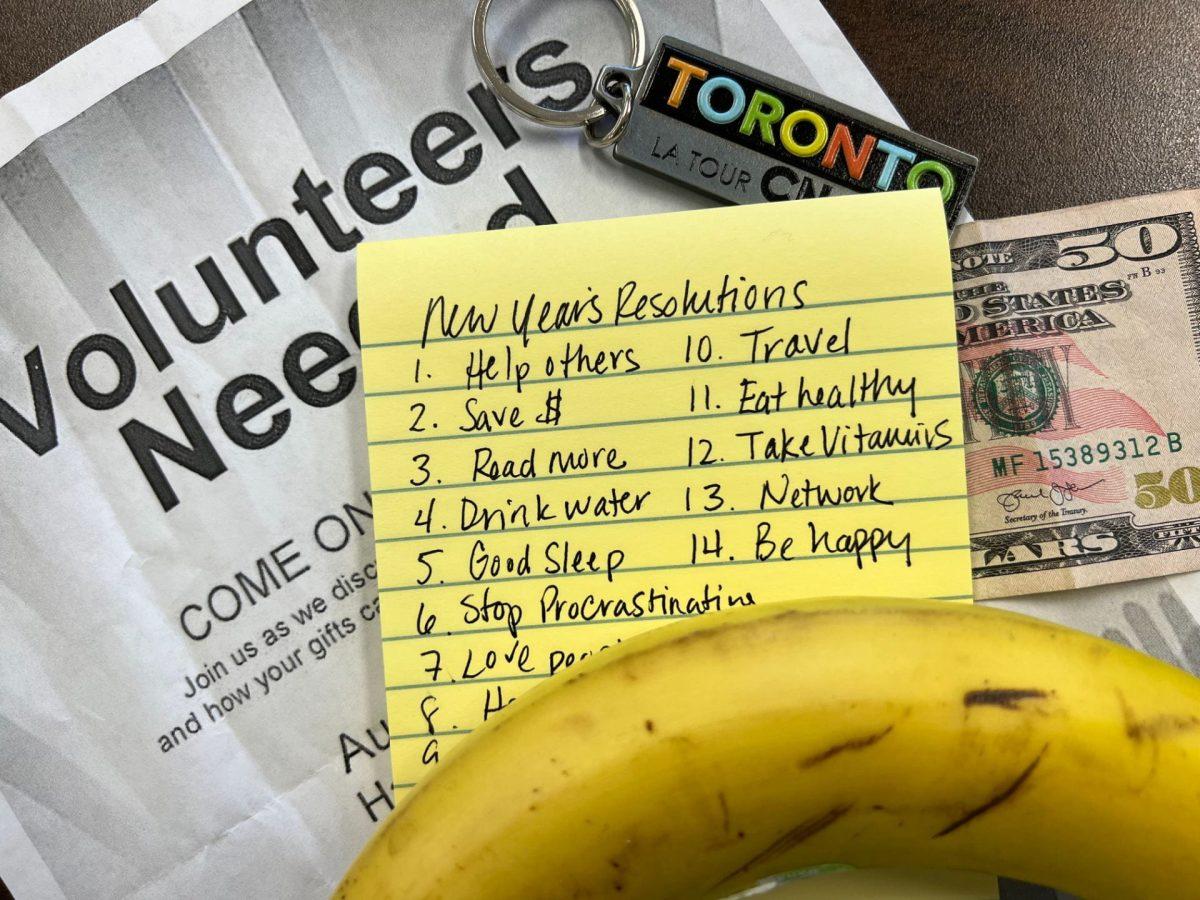 Volunteers
COME ON
Join us as we
and how your gifts
TORONTO
LA TOUR CN
New Year's Resolutions
1. Help others
2. Save $
3. Read more
4. Drink water
5. Good Sleep
6. Stop Procrastinating
7. Love
8.
9
10. Travel
11. Eat healthy
12. Take Vitamins
13. Network
14. Be happy
NOTE 50
THE
STATES
B
MF 15389312 B
Secretary of the Treasury.
50